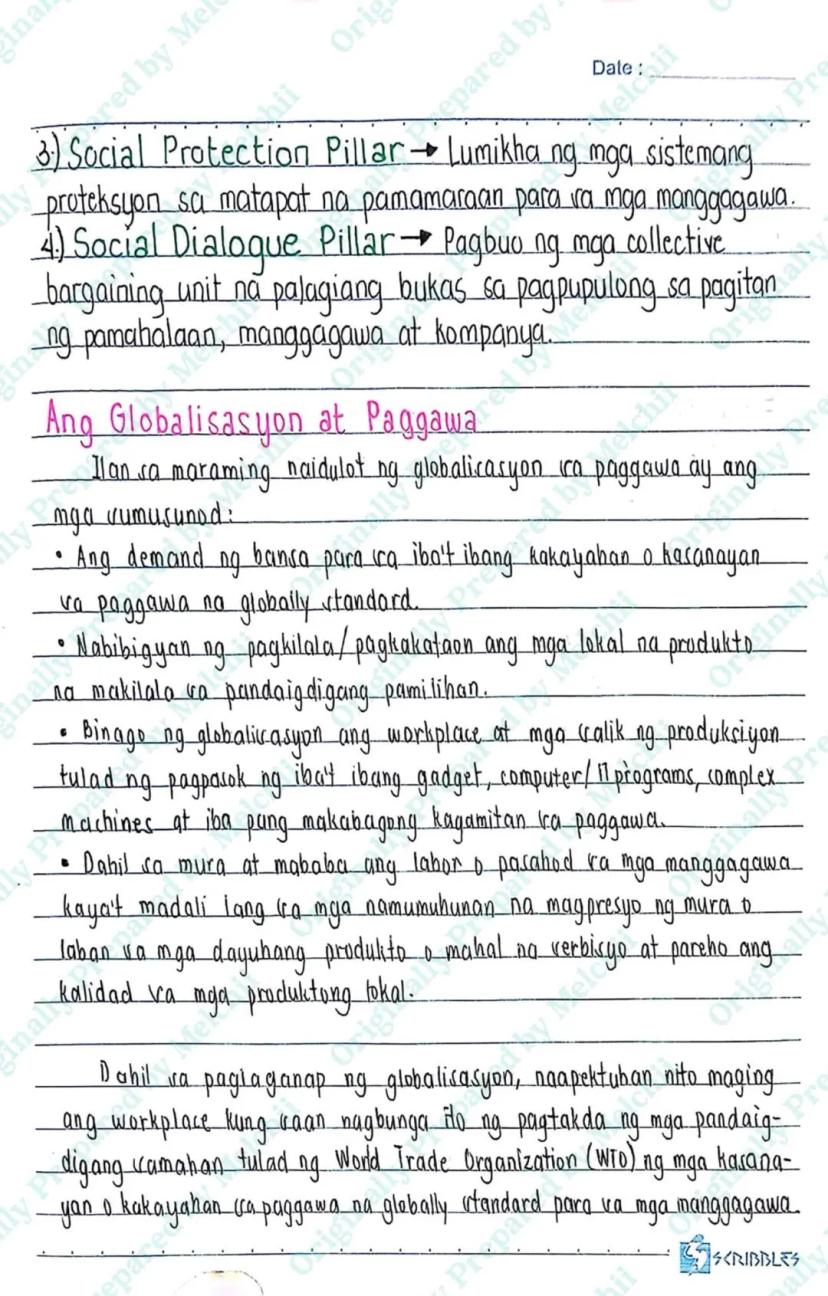 Date :
3.) Social Protection Pillar → Lumikha ng mga sistemang
proteksyon sa matapat na pamamaraan para sa mga manggagawa.
4.) Social Dialogue Pillar → Pagbuo ng mga collective
bargaining unit na palagiang bukas sa pagpupulong sa pagitan
ng pamahalaan, manggagawa at kompanya.
Ang Globalisasyon at Paggawa
Ilan sa maraming naidulot ng globalisasyon sa paggawa ay ang
mga sumusunod:
• Ang demand ng bansa para sa iba't ibang kakayahan o kasanayan
sa paggawa na globally standard.
• Nabibigyan ng pagkilala/pagkakataon ang mga lokal na produkto
na makilala sa pandaigdigang pamilihan.
• Binago ng globalisasyon ang workplace at mga salik ng produksiyon
tulad ng pagpasok ng iba't ibang gadget, computer/IT programs, complex
machines at iba pang makabagong kagamitan sa paggawa.
• Dahil sa mura at mababa ang labor o pasahod sa mga manggagawa
kaya't madali lang sa mga namumuhunan na magpresyo ng mura o
laban sa mga dayuhang produkto o mahal na serbisyo at pareho ang
kalidad sa mga produktong lokal.
Dahil sa paglaganap ng globalisasyon, naapektuhan nito maging
ang workplace kung saan nagbunga ito ng pagtakda ng mga pandaig-
digang samahan tulad ng World Trade Organization (WTO) ng mga kasana-
yan o kakayahan sa paggawa na globally standard para sa mga manggagawa.
SCRIBBLES
Originally Prepared by Melchii